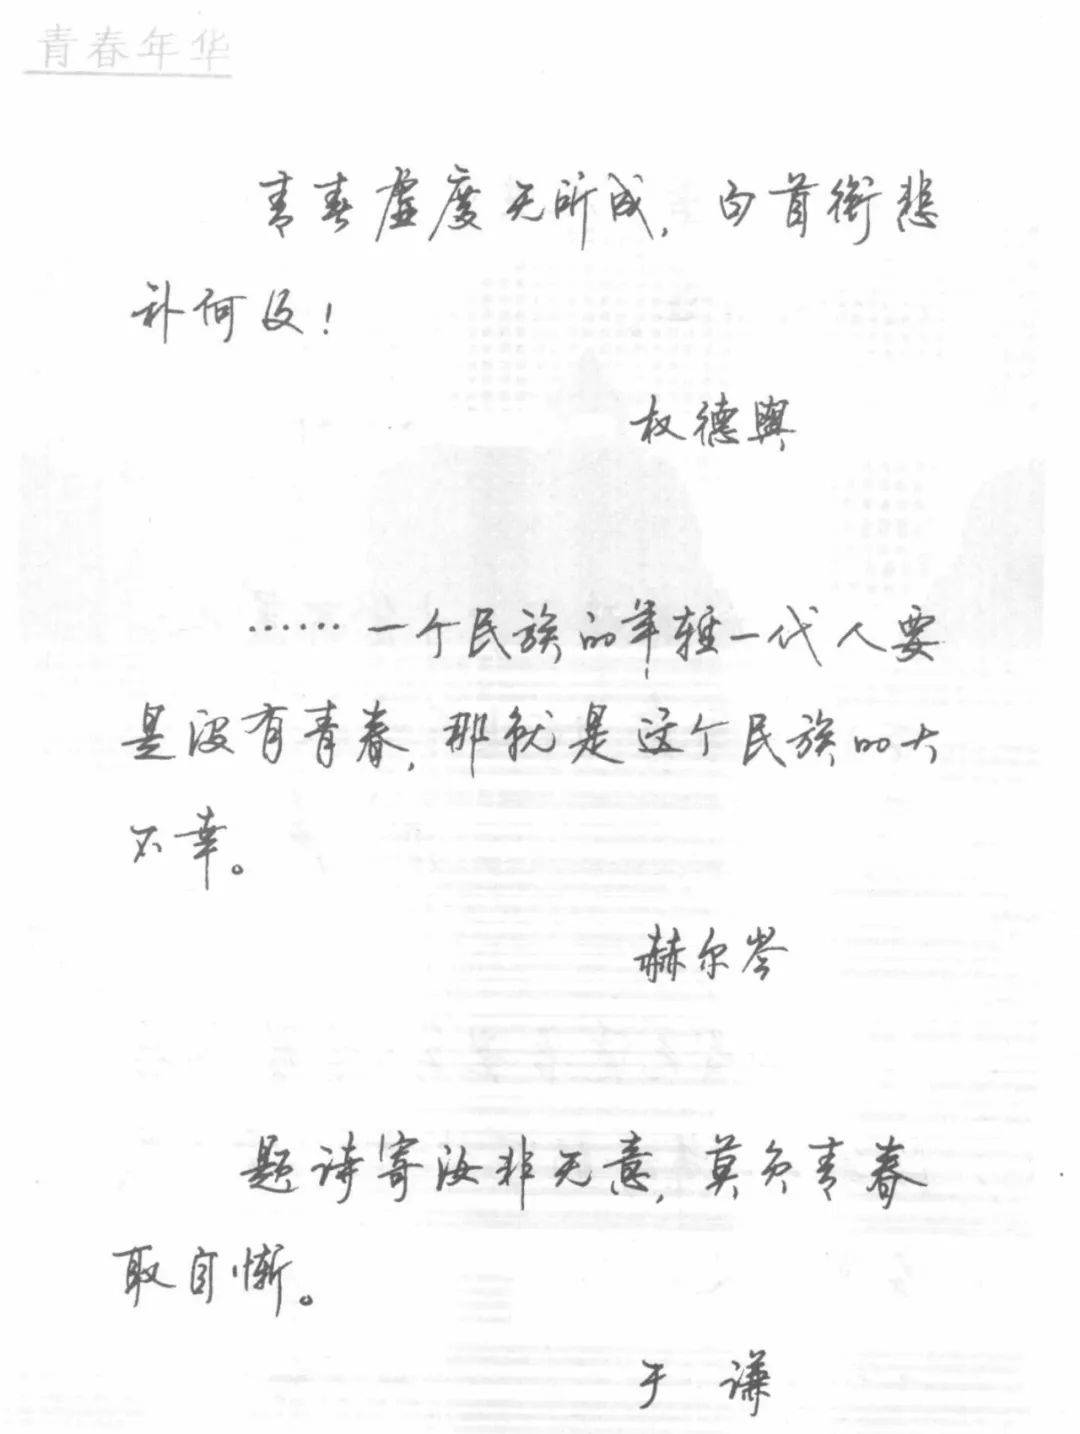 青春年华
青春虚度无所成，白首衔悲
补何及！
权德舆
……一个民族的年轻一代人要
是没有青春，那就是这个民族的大
不幸。
赫尔岑
题诗寄汝非无意，莫负青春
取自惭。
于谦